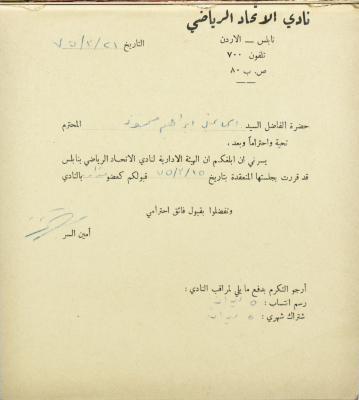 نادي الاتحاد الرياضي
نابلس — الاردن
تلفون ٧٠٠
ص . ب ٨٠
التاريخ ٧٥/٢/٢١
حضرة الفاضل السيد ابراهيم المحترم
تحية واحتراماً وبعد ،
يسرني ان ابلغكم ان الهيئة الادارية لنادي الاتحاد الرياضي بنابلس
قد قررت بجلستها المنعقدة بتاريخ ٧٥/٢/١٥ قبولكم كعضو بالنادي
وتفضلوا بقبول فائق احترامي
أمين السر
أرجو التكرم بدفع ما يلي لمراقب النادي :
رسم انتساب : ٥
شتراك شهري : ٥